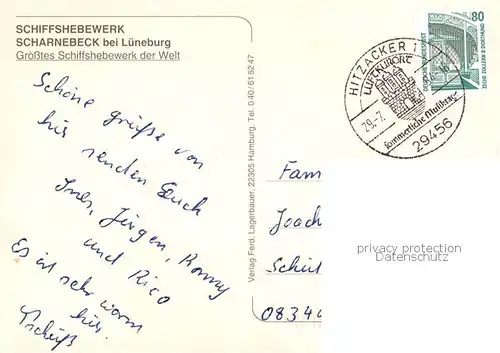 SCHIFFSHEBEWERK
SCHARNEBECK bei Lüneburg
Größtes Schiffshebewerk der Welt
Schöne grüße von
hir senden Euch
Ines, Jürgen, Ronny
und Rico
Es ist sehr warm
hir.
Tschüß
Verlag Ferd. Lagerbauer, 22305 Hamburg, Tel. 0 40/6 15 2 47
HITZACKER 1
LUFTKURORT
29.-7.
Sommerliche Musiktage
29456
80
DEUTSCHE BUNDESPOST
ZECHE ZOLLERN II DORTMUND
Fam
Joach
Schüt
privacy protection
Datenschutz
0834